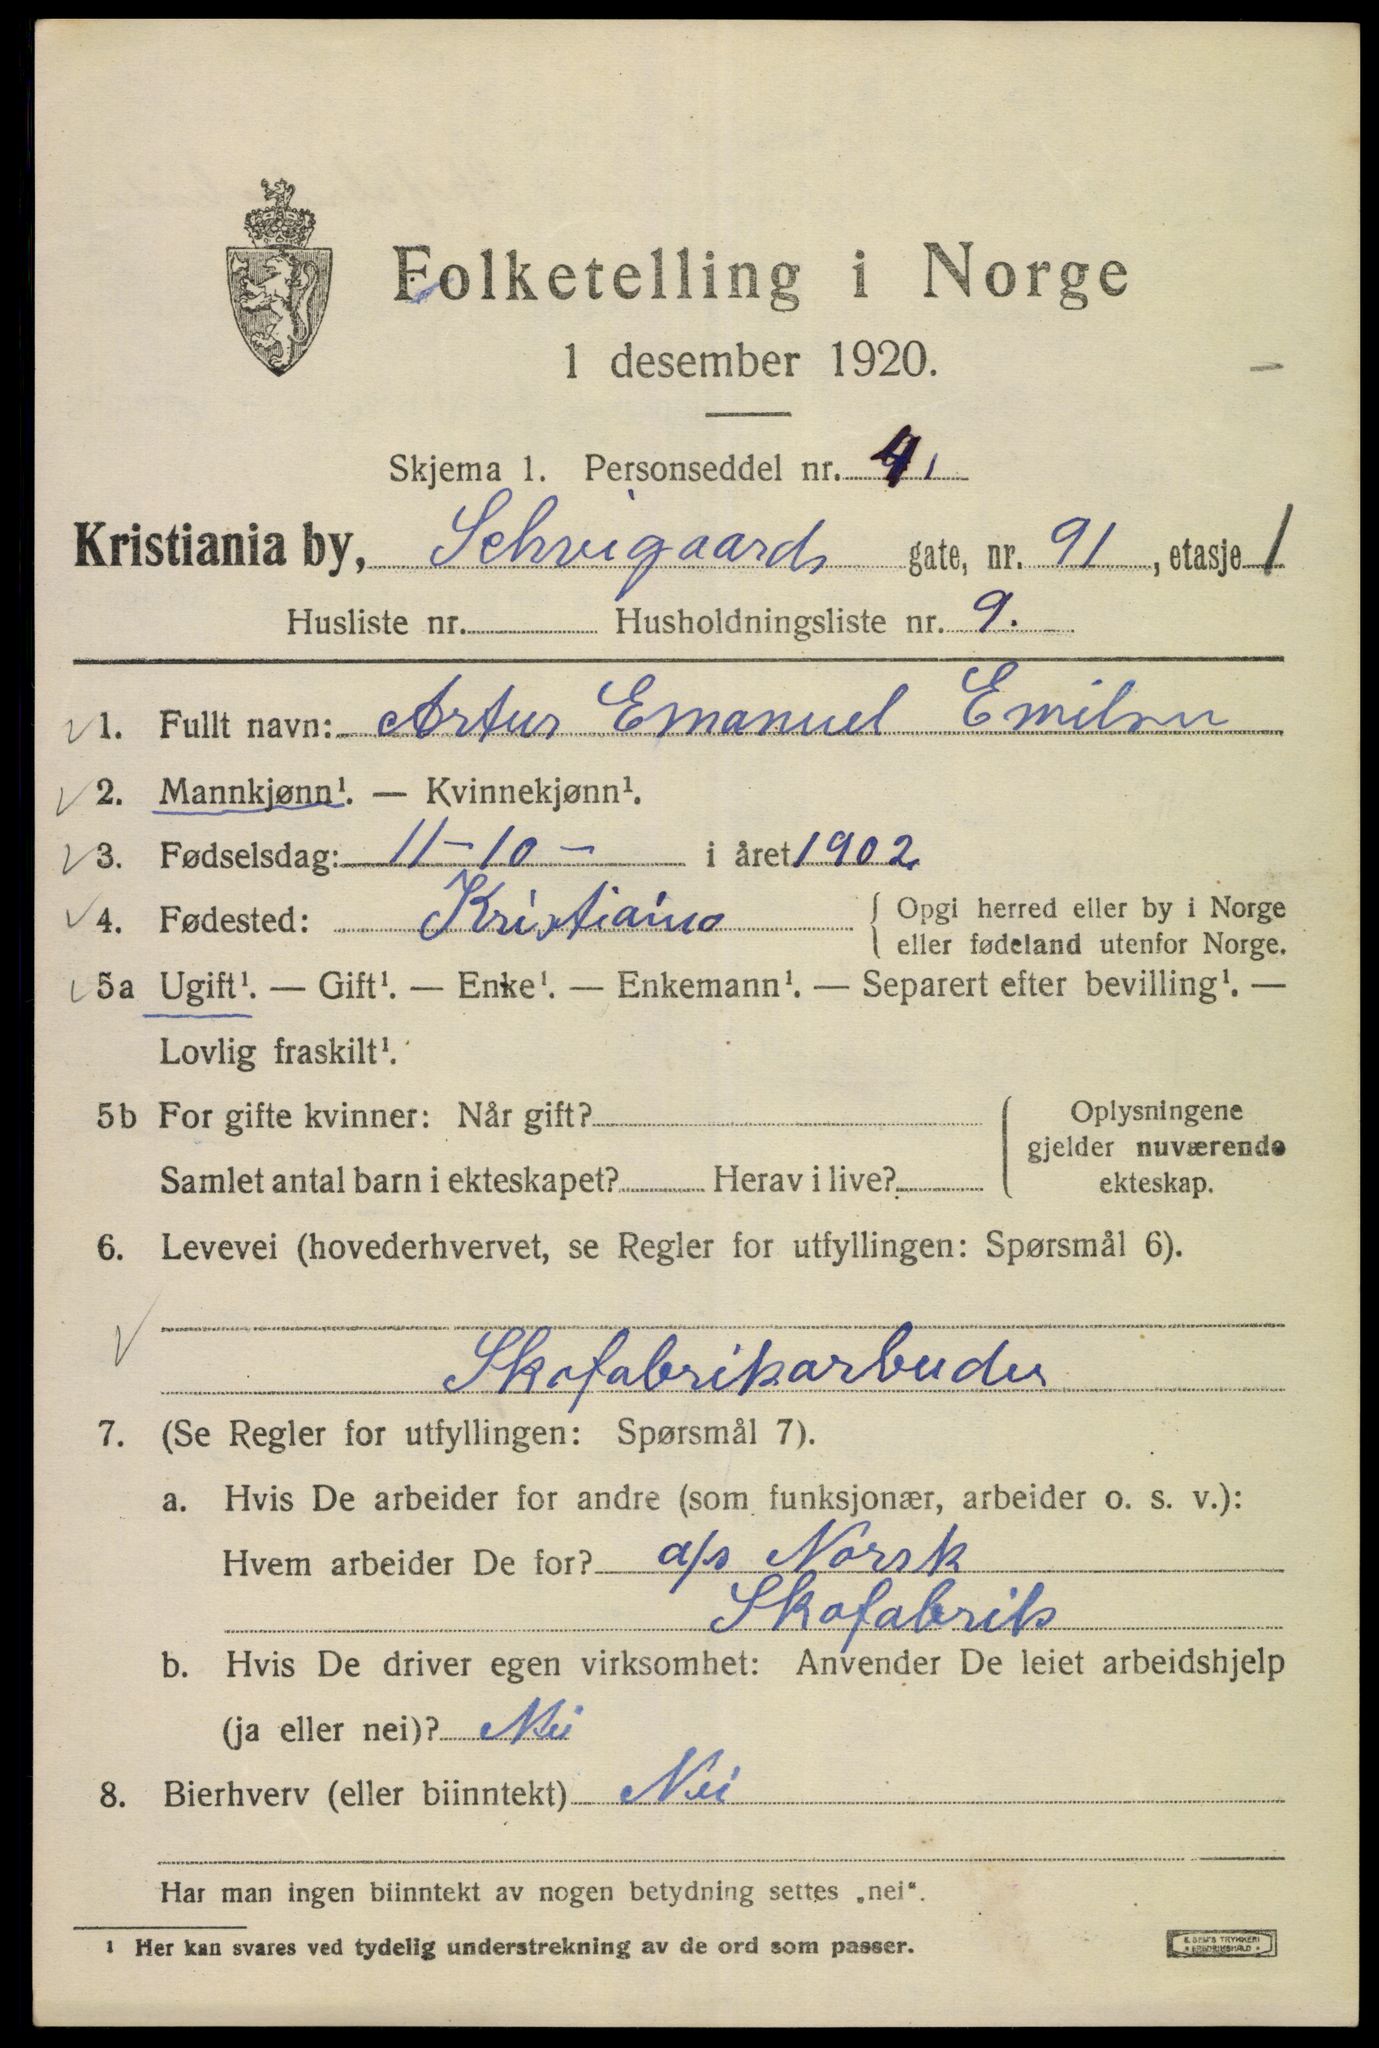 Folketelling i Norge
1 desember 1920.
Skjema 1. Personseddel nr. 4
Kristiania by, Schweigaards gate, nr. 91, etasje 1
Husliste nr. Husholdningsliste nr. 9.
1. Fullt navn: Artur Emanuel Emilsen
2. Mannkjønn¹. — Kvinnekjønn¹.
3. Fødselsdag: 11-10- i året 1902
4. Fødested: Kristiania { Opgi herred eller by i Norge
eller fødeland utenfor Norge.
5a Ugift¹. — Gift¹. — Enke¹. — Enkemann¹. — Separert efter bevilling¹. —
Lovlig fraskilt¹.
5b For gifte kvinner: Når gift? { Oplysningene
gjelder nuværende
Samlet antal barn i ekteskapet? Herav i live? ekteskap.
6. Levevei (hovederhvervet, se Regler for utfyllingen: Spørsmål 6).
Skofabrikarbeider
7. (Se Regler for utfyllingen: Spørsmål 7).
a. Hvis De arbeider for andre (som funksjonær, arbeider o. s. v.):
Hvem arbeider De for? a/s Norsk
Skofabrik
b. Hvis De driver egen virksomhet: Anvender De leiet arbeidshjelp
(ja eller nei)? Nei
8. Bierhverv (eller biinntekt) Nei
Har man ingen biinntekt av nogen betydning settes „nei“.
¹ Her kan svares ved tydelig understrekning av de ord som passer.
E. SEM'S TRYKKERI
FREDRIKSHALD